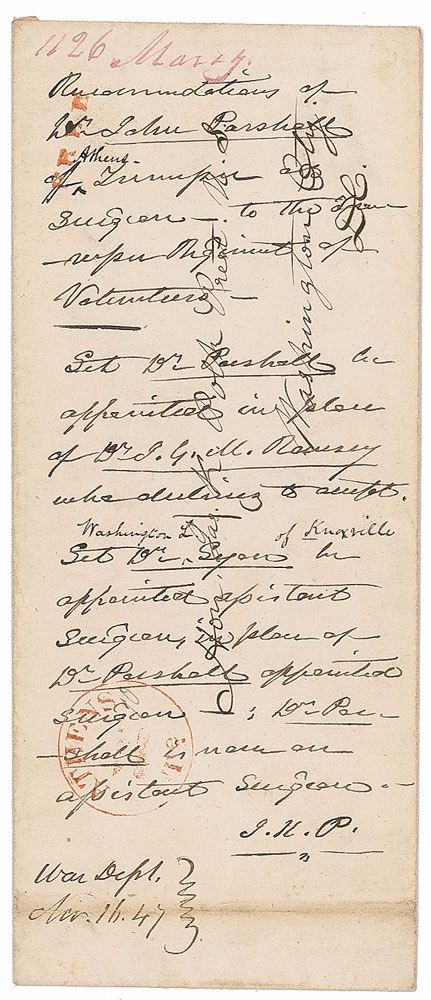 1126 Marcy.
Recommendations of
Dr. John Parshall
Athens
of, Tennessee as
surgeon - to the Tenn-
essee Regiment of
Volunteers -
Let Dr Parshall be
appointed in place
of Dr J. G. M. Ramsey
who declines to accept.
Washington L of Knoxville
Let Dr. Lyon be
appointed assistant
surgeon, in place of
Dr Parshall appointed
surgeon - ; Dr Par-
-shall is now an
assistant surgeon -
J. K. P.
War Dept.
Nov. 16. 47
FREE
ATHENS
Hon. Jas. K. Polk Prest U. S.
Washington City
D.C.